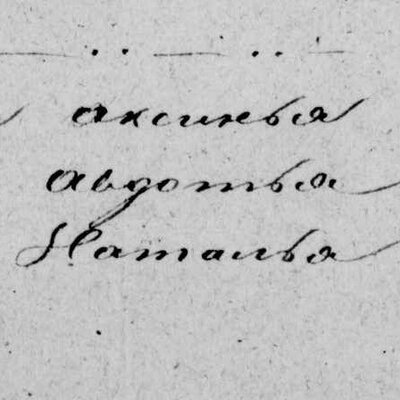 Аксинья
Авдотья
Наталья